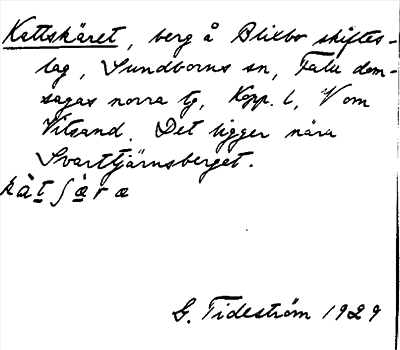 Kattskäret, berg å Blixbo skiftes-
lag, Sundborns sn, Falu dom-
sagas norra tg, Kopp. l, V om
Vitsand. Det ligger nära
Svarttjärnsberget.
G. Tideström 1929